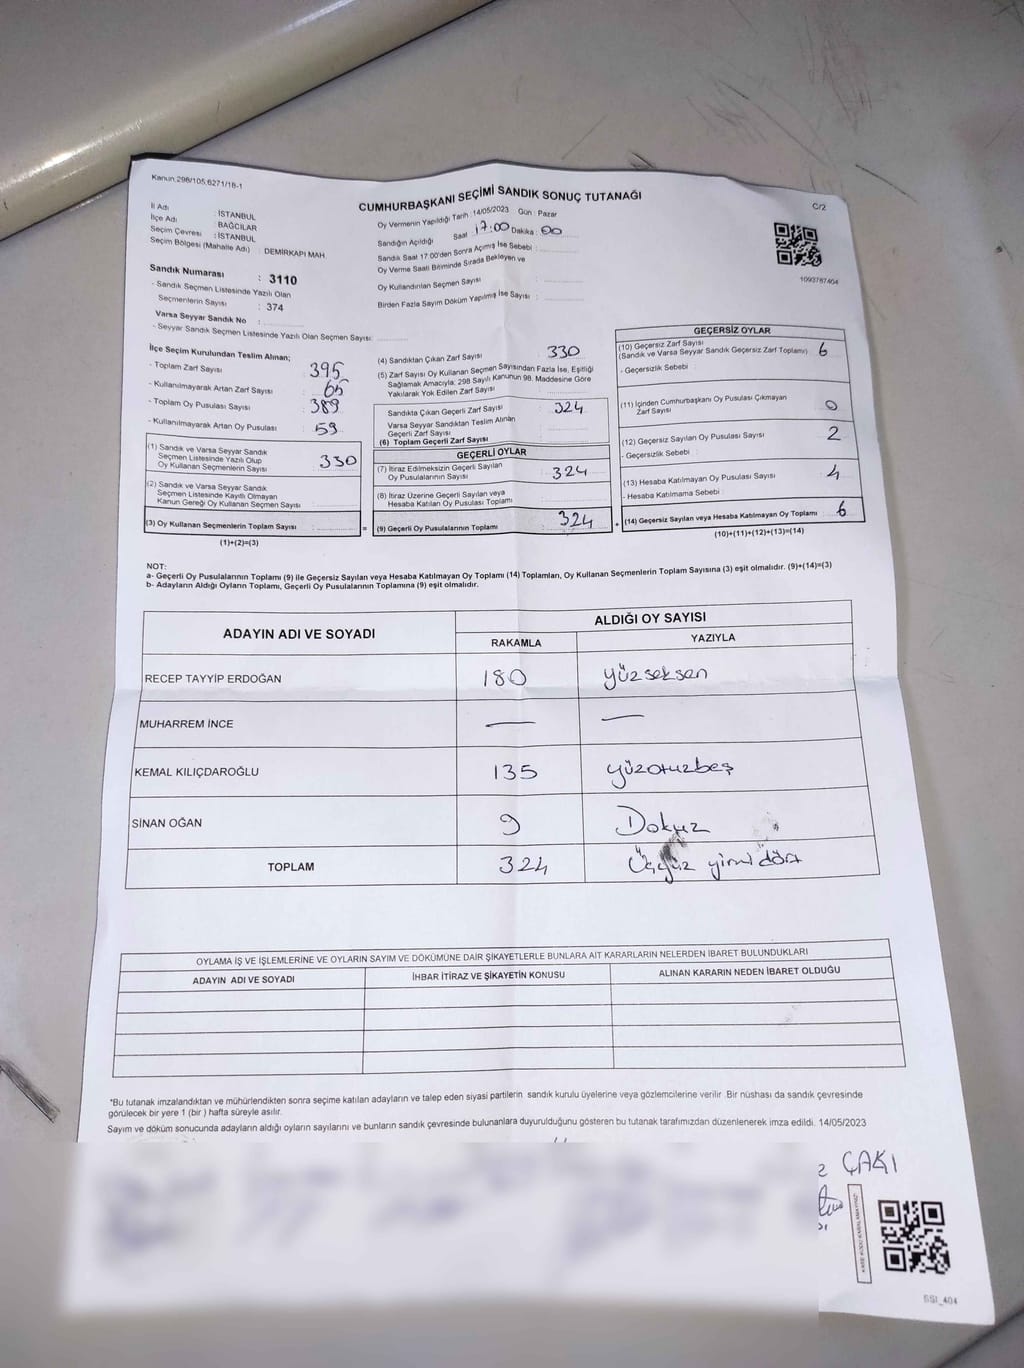 Kanun 298/105,6271/18-1
CUMHURBAŞKANI SEÇİMİ SANDIK SONUÇ TUTANAĞI
C/2
İl Adı : İSTANBUL
İlçe Adı : BAĞCILAR
Seçim Çevresi : İSTANBUL
Seçim Bölgesi (Mahalle Adı) : DEMİRKAPI MAH.
Oy Vermenin Yapıldığı Tarih : 14/05/2023 Gün : Pazar
Sandığın Açıldığı Saat 17:00 Dakika : 00
Sandık Saat 17:00'den Sonra Açımış İse Sebebi :
Oy Verme Saati Bitiminde Sırada Bekleyen ve
Oy Kullandırılan Seçmen Sayısı :
Birden Fazla Sayım Döküm Yapılmış İse Sayısı :
1093787404
Sandık Numarası : 3110
- Sandık Seçmen Listesinde Yazılı Olan
Seçmenlerin Sayısı : 374
Varsa Seyyar Sandık No :
- Seyyar Sandık Seçmen Listesinde Yazılı Olan Seçmen Sayısı:
İlçe Seçim Kurulundan Teslim Alınan;
- Toplam Zarf Sayısı : 395
- Kullanılmayarak Artan Zarf Sayısı : 65
- Toplam Oy Pusulası Sayısı : 389
- Kullanılmayarak Artan Oy Pusulası : 59
(1) Sandık ve Varsa Seyyar Sandık
Seçmen Listesinde Yazılı Olup
Oy Kullanan Seçmenlerin Sayısı : 330
(2) Sandık ve Varsa Seyyar Sandık
Seçmen Listesinde Kayıtlı Olmayan
Kanun Gereği Oy Kullanan Seçmen Sayısı :
(3) Oy Kullanan Seçmenlerin Toplam Sayısı :
(1)+(2)=(3)
(4) Sandıktan Çıkan Zarf Sayısı : 330
(5) Zarf Sayısı Oy Kullanan Seçmen Sayısından Fazla İse, Eşitliği
Sağlamak Amacıyla; 298 Sayılı Kanunun 98. Maddesine Göre
Yakılarak Yok Edilen Zarf Sayısı :
Sandıkta Çıkan Geçerli Zarf Sayısı : 324
Varsa Seyyar Sandıktan Teslim Alınan
Geçerli Zarf Sayısı :
(6) Toplam Geçerli Zarf Sayısı
GEÇERLİ OYLAR
(7) İtiraz Edilmeksizin Geçerli Sayılan
Oy Pusulalarının Sayısı : 324
(8) İtiraz Üzerine Geçerli Sayılan veya
Hesaba Katılan Oy Pusulası Toplamı :
= (9) Geçerli Oy Pusulalarının Toplamı : 324
GEÇERSİZ OYLAR
(10) Geçersiz Zarf Sayısı
(Sandık ve Varsa Seyyar Sandık Geçersiz Zarf Toplamı) : 6
- Geçersizlik Sebebi :
(11) İçinden Cumhurbaşkanı Oy Pusulası Çıkmayan
Zarf Sayısı : 0
(12) Geçersiz Sayılan Oy Pusulası Sayısı : 2
- Geçersizlik Sebebi :
(13) Hesaba Katılmayan Oy Pusulası Sayısı : 4
- Hesaba Katılmama Sebebi :
+ (14) Geçersiz Sayılan veya Hesaba Katılmayan Oy Toplamı : 6
(10)+(11)+(12)+(13)=(14)
NOT:
a- Geçerli Oy Pusulalarının Toplamı (9) ile Geçersiz Sayılan veya Hesaba Katılmayan Oy Toplamı (14) Toplamları, Oy Kullanan Seçmenlerin Toplam Sayısına (3) eşit olmalıdır. (9)+(14)=(3)
b- Adayların Aldığı Oyların Toplamı, Geçerli Oy Pusulalarının Toplamına (9) eşit olmalıdır.
ADAYIN ADI VE SOYADI
ALDIĞI OY SAYISI
RAKAMLA YAZIYLA
RECEP TAYYİP ERDOĞAN 180 yüzseksen
MUHARREM İNCE — —
KEMAL KILIÇDAROĞLU 135 yüzotuzbeş
SİNAN OĞAN 9 Dokuz
TOPLAM 324 Üçyüz yirmi dört
OYLAMA İŞ VE İŞLEMLERİNE VE OYLARIN SAYIM VE DÖKÜMÜNE DAİR ŞİKAYETLERLE BUNLARA AİT KARARLARIN NELERDEN İBARET BULUNDUKLARI
ADAYIN ADI VE SOYADI İHBAR İTİRAZ VE ŞİKAYETİN KONUSU ALINAN KARARIN NEDEN İBARET OLDUĞU
*Bu tutanak imzalandıktan ve mühürlendikten sonra seçime katılan adayların ve talep eden siyasi partilerin sandık kurulu üyelerine veya gözlemcilerine verilir. Bir nüshası da sandık çevresinde
görülecek bir yere 1 (bir ) hafta süreyle asılır.
Sayım ve döküm sonucunda adayların aldığı oyların sayılarını ve bunların sandık çevresinde bulunanlara duyurulduğunu gösteren bu tutanak tarafımızdan düzenlenerek imza edildi. 14/05/2023
ÇAKI
SSI_404